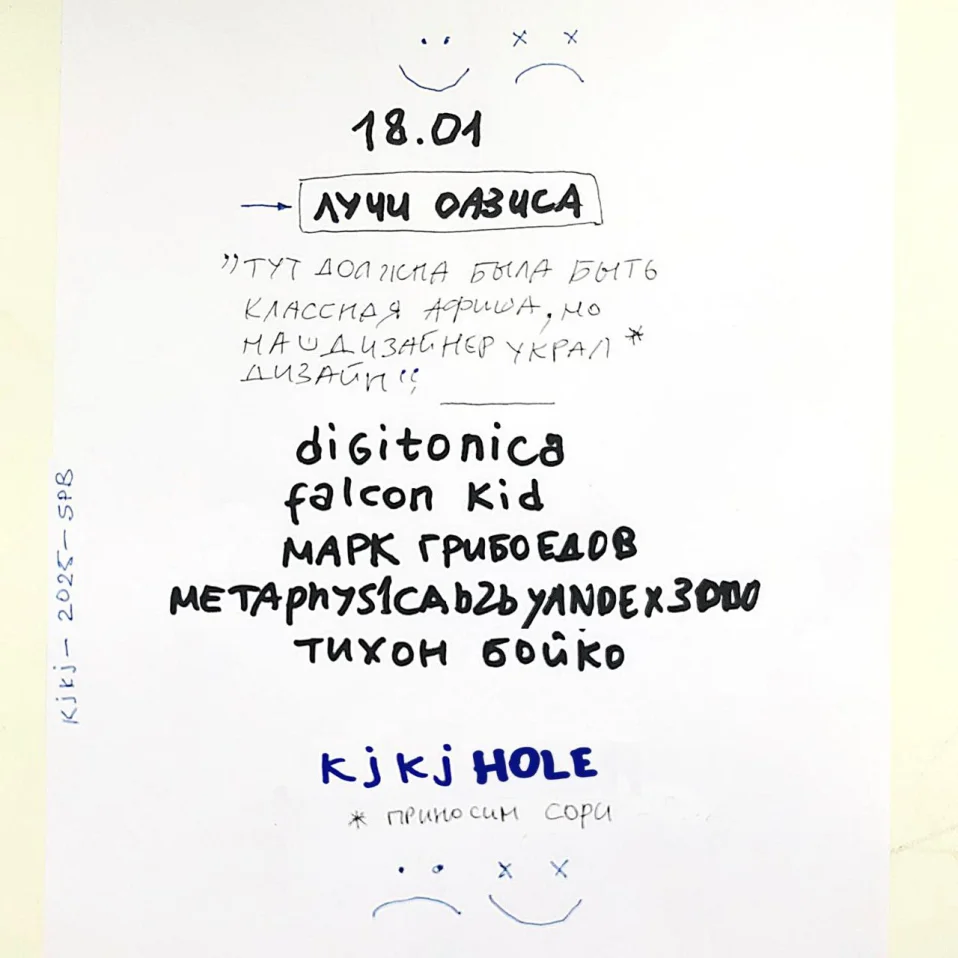 18.01
ЛУЧИ ОАЗИСА
"ТУТ ДОЛЖНА БЫЛА БЫТЬ
КЛАССНАЯ АФИША, НО
НАШ ДИЗАЙНЕР УКРАЛ *
ДИЗАЙН"
digitonica
falcon kid
МАРК ГРИБОЕДОВ
METAphYS1CA b2b YANDEX3000
ТИХОН БОЙКО
kjkj HOLE
* ПРИНОСИМ СОРИ
kjkj – 2025 – SPB